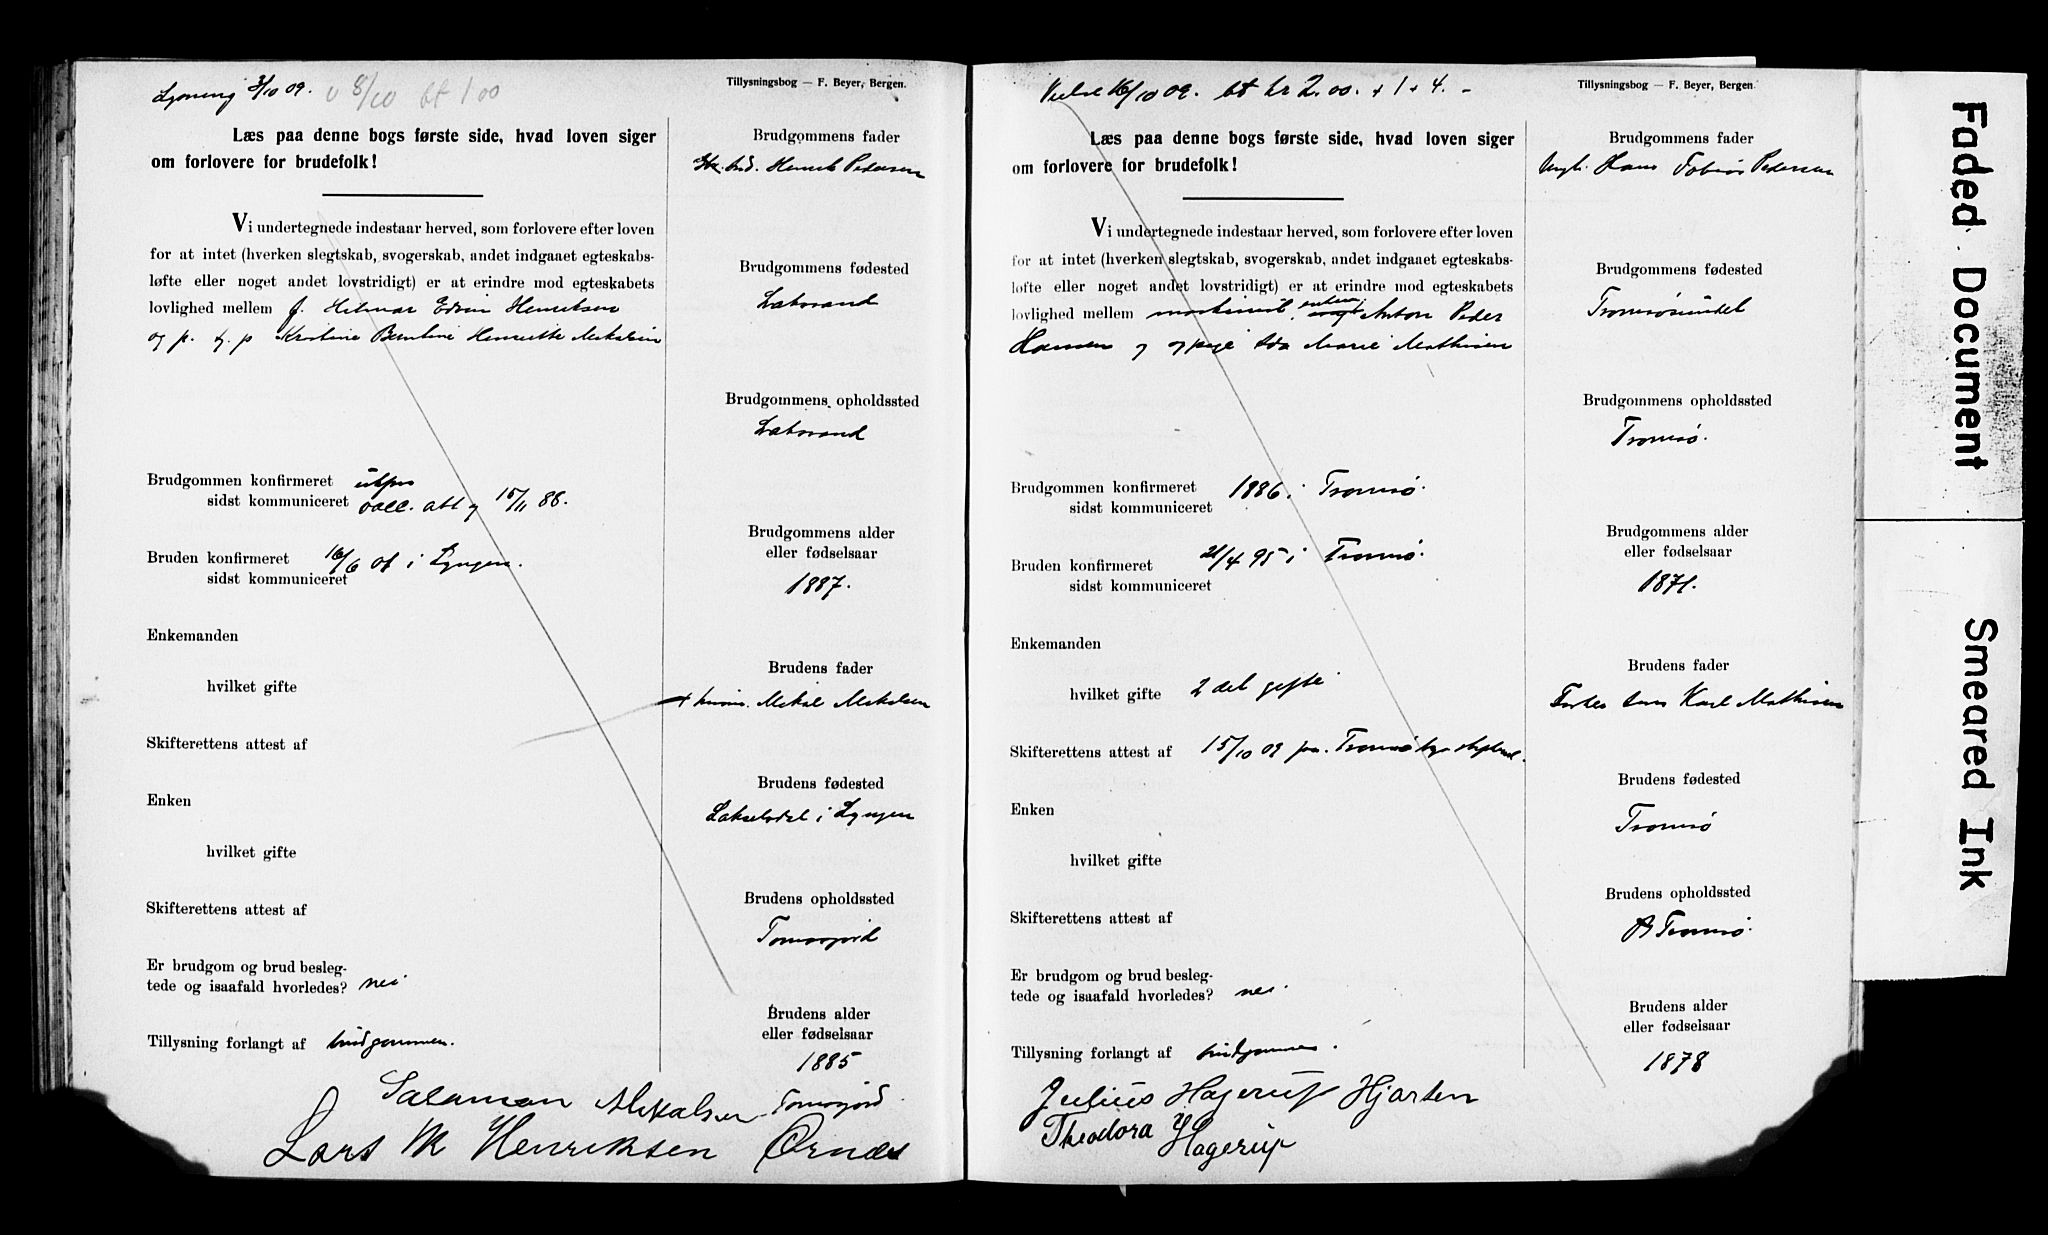 3/10 09. 8/10 bt 1 00
Tillysningsbog — F. Beyer, Bergen.
Læs paa denne bogs første side, hvad loven siger
om forlovere for brudefolk!
Vi undertegnede indestaar herved, som forlovere efter loven
for at intet (hverken slegtskab, svogerskab, andet indgaaet egteskabs-
løfte eller noget andet lovstridigt) er at erindre mod egteskabets
lovlighed mellem f. Hilmar Edvin Henriksen
og p. Kristine Berntine Henriette Mikalsen
Brudgommen konfirmeret
sidst kommuniceret att 15/11 88.
Bruden konfirmeret 16/6 01 i Lyngen.
sidst kommuniceret
Enkemanden
hvilket gifte
Skifterettens attest af
Enken
hvilket gifte
Skifterettens attest af
Er brudgom og brud besleg-
tede og isaafald hvorledes? nei
Tillysning forlangt af brudgommen.
Brudgommens fader
Henrik Pedersen
Brudgommens fødested
Laksvand
Brudgommens opholdssted
Laksvand
Brudgommens alder
eller fødselsaar
1887.
Brudens fader
Mikal Mikalsen
Brudens fødested
Lakselvdal i Lyngen
Brudens opholdssted
Tomasjord
Brudens alder
eller fødselsaar
1885
Salamon Mikalsen Tomasjord
Lars M Henriksen Ørnæs
Vielse 16/10 09. bt kr 2.00. + 1 + 4. -
Tillysningsbog — F. Beyer, Bergen.
Læs paa denne bogs første side, hvad loven siger
om forlovere for brudefolk!
Vi undertegnede indestaar herved, som forlovere efter loven
for at intet (hverken slegtskab, svogerskab, andet indgaaet egteskabs-
løfte eller noget andet lovstridigt) er at erindre mod egteskabets
lovlighed mellem maskinist, enkem. Anton Peder
Hansen og pige Ida Marie Mathisen
Brudgommen konfirmeret 1886 i Tromsø.
sidst kommuniceret
Bruden konfirmeret 21/4 95 i Tromsø.
sidst kommuniceret
Enkemanden
hvilket gifte 2 det gifte
Skifterettens attest af 15/10 09 fra Tromsø
Enken
hvilket gifte
Skifterettens attest af
Er brudgom og brud besleg-
tede og isaafald hvorledes? nei.
Tillysning forlangt af brudgommen.
Brudgommens fader
Hans Tobias Pedersen
Brudgommens fødested
Tromsøsundet
Brudgommens opholdssted
Tromsø.
Brudgommens alder
eller fødselsaar
1871.
Brudens fader
Karl Mathisen
Brudens fødested
Tromsø
Brudens opholdssted
Tromsø.
Brudens alder
eller fødselsaar
1878
Julius Hagerup Hjorten
Theodora Hagerup
Faded Document
Smeared Ink